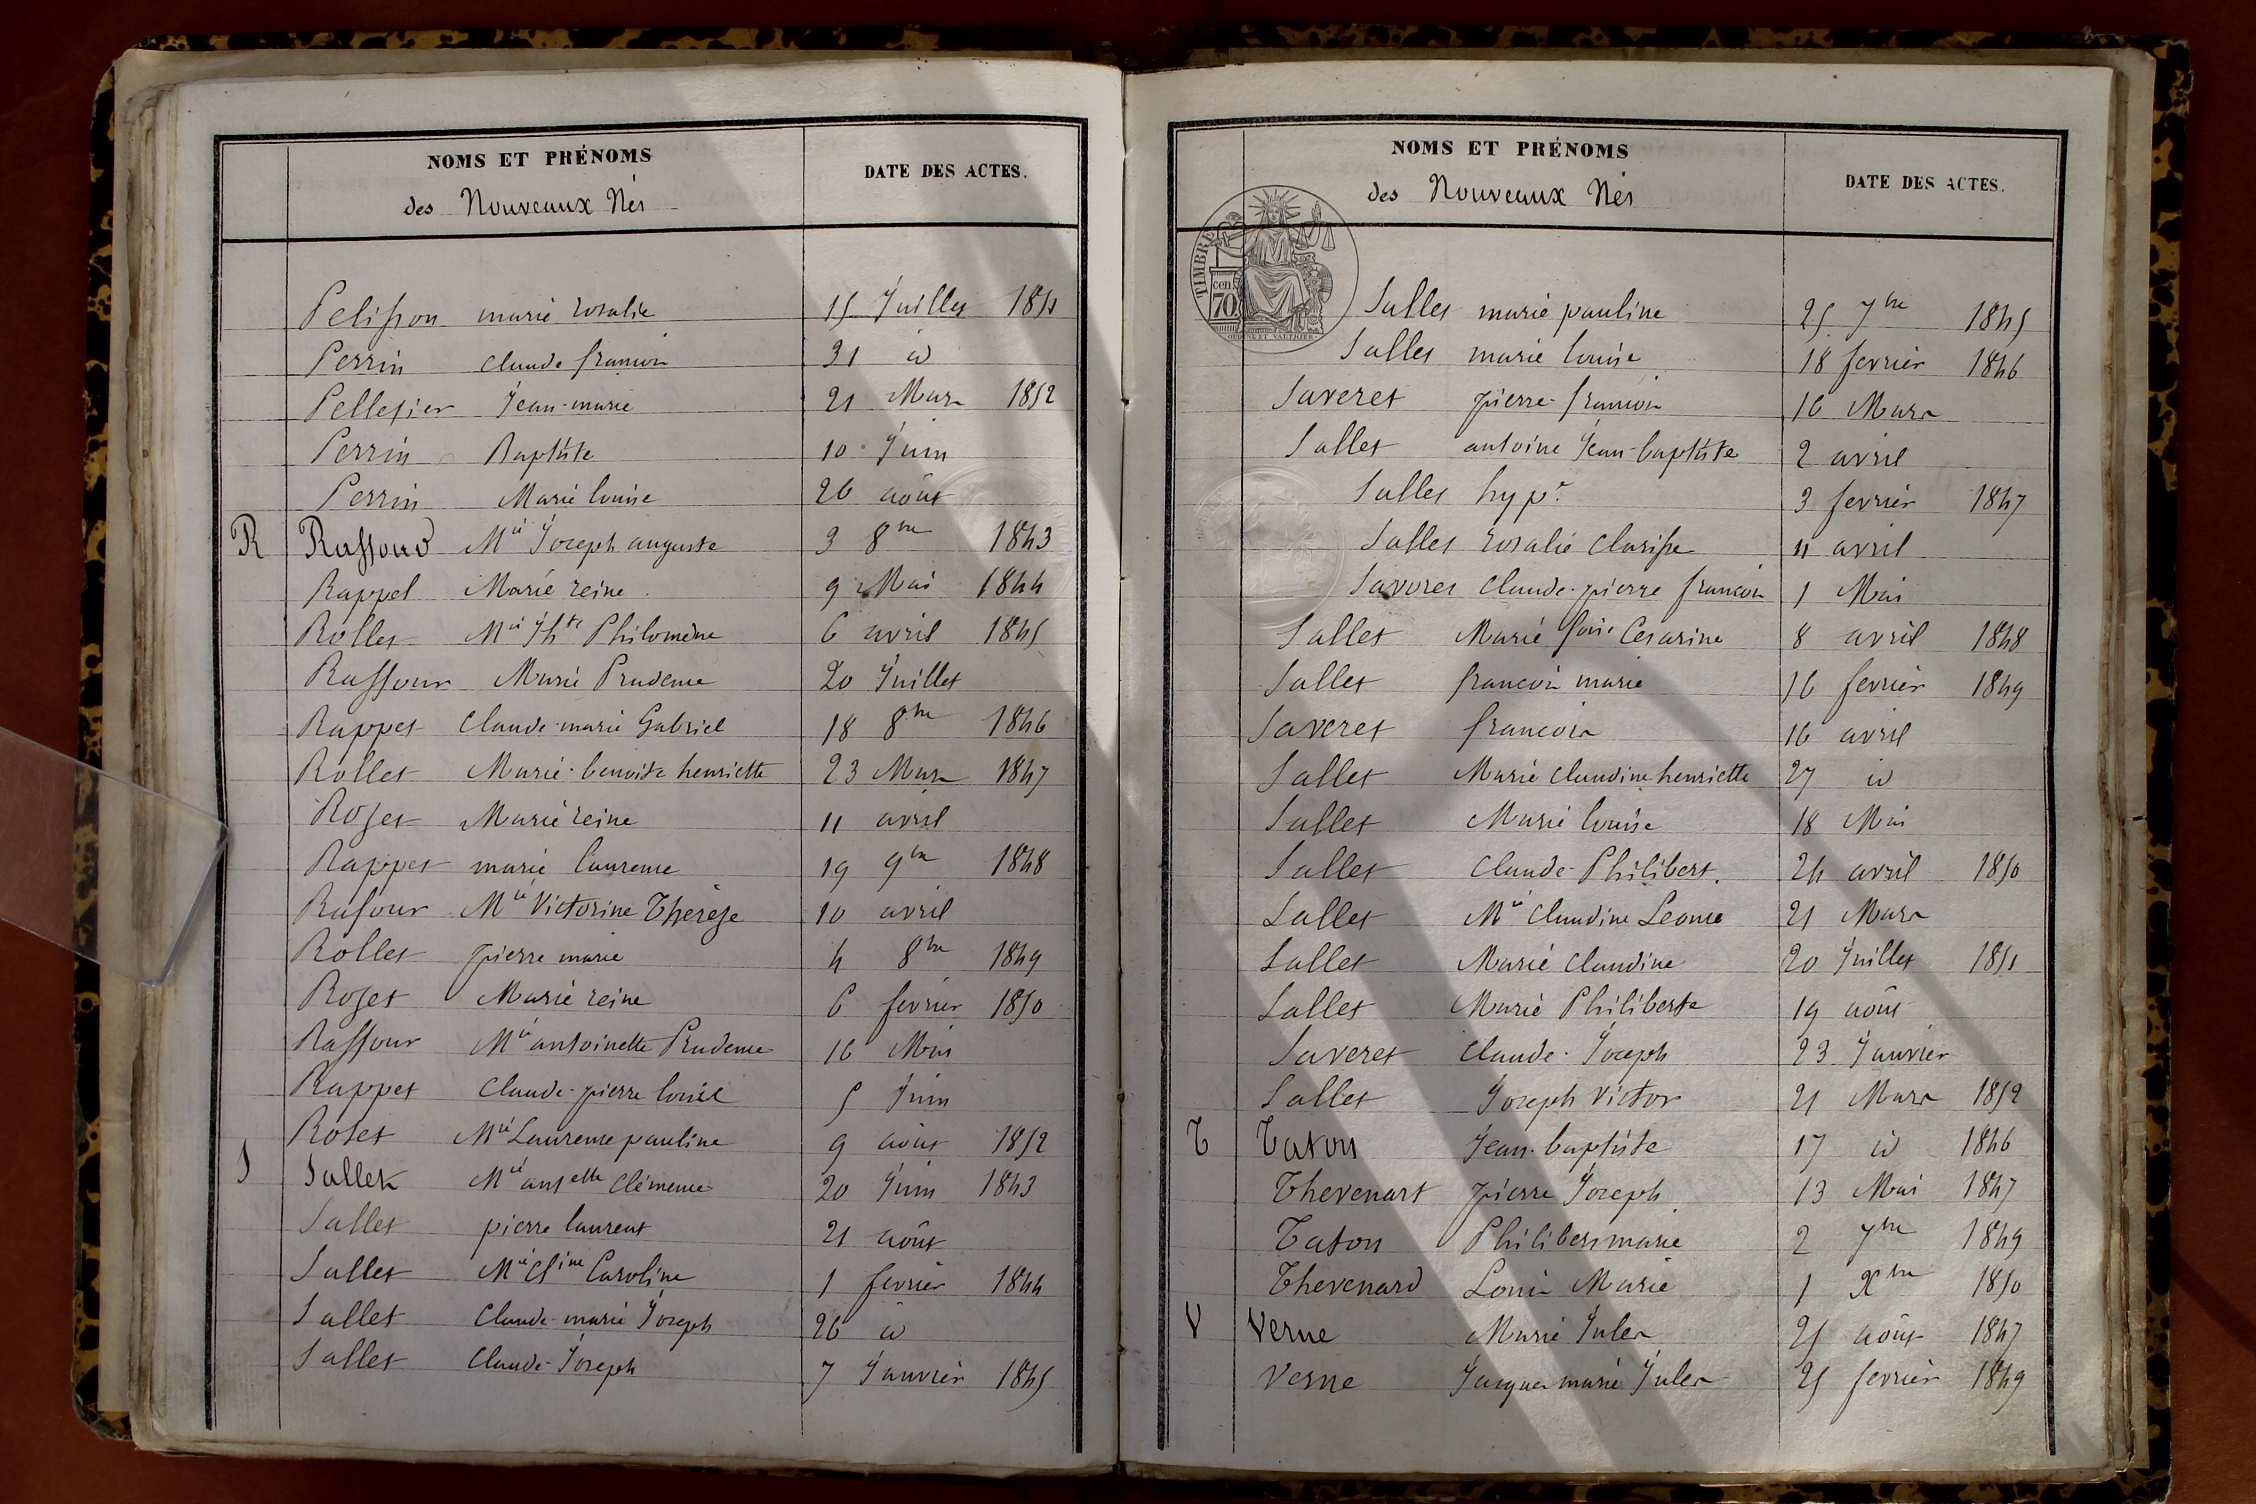 NOMS ET PRÉNOMS DATE DES ACTES.
des Nouveaux Nés
Pelisson marie rosalie 15 Juillet 1851
Perrin Claude françois 31 id
Pelletier Jean-marie 21 Mars 1852
Perrin Baptiste 10 Juin
Perrin Marie louise 26 août
R Raffourd Mie Joseph auguste 3 8bre 1843
Rappet Marie reine 9 Mai 1844
Rollet Mie Jhte Philomène 6 avril 1845
Raffour Marie Prudence 20 Juillet
Rappet Claude-marie Gabriel 18 8bre 1846
Rollet Marie-benoite henriette 23 Mars 1847
Roset Marie reine 11 avril
Rappet marie laurence 19 9bre 1848
Rafour Mie Victorine Thérèse 10 avril
Rollet pierre marie 4 8bre 1849
Roset Marie reine 6 fevrier 1850
Raffour Mie antoinette Prudence 16 Mai
Rappet Claude-pierre louis 5 Juin
Roset Mie Laurence pauline 9 août 1852
S Sallet Mie antette Clémence 20 Juin 1843
Sallet pierre laurent 21 août
Sallet Mie Cline Caroline 1 fevrier 1844
Sallet Claude-marie Joseph 26 id
Sallet Claude-Joseph 7 Janvier 1845
NOMS ET PRÉNOMS DATE DES ACTES.
des Nouveaux Nés
TIMBRE
cen.
70
Salles marie pauline 25 7bre 1845
Salles marie louise 18 fevrier 1846
Saveret pierre-françois 16 Mars
Sallet antoine Jean-baptiste 2 avril
Salles hypte 3 fevrier 1847
Salles rosalie Clarisse 11 avril
Savores Claude-pierre francois 1 Mai
Sallet Marie foise Cesarine 8 avril 1848
Sallet francois marie 16 fevrier 1849
Saveret francois 16 avril
Sallet Marie Claudine henriette 27 id
Sallet Marie louise 18 Mai
Sallet Claude-Philibert 24 avril 1850
Sallet Mie Claudine Leonie 21 Mars
Sallet Marie Claudine 20 Juillet 1851
Sallet Marie Philiberte 19 août
Saveret Claude-Joseph 23 Janvier
Sallet Joseph Victor 21 Mars 1852
T Taton Jean-baptiste 17 id 1846
Thevenart pierre Joseph 13 Mai 1847
Taton Philibert marie 2 7bre 1849
Thevenard Louis Marie 1 Xbre 1850
V Verne Marie Jules 25 août 1847
Verne Jacques marie Jules 25 fevrier 1849